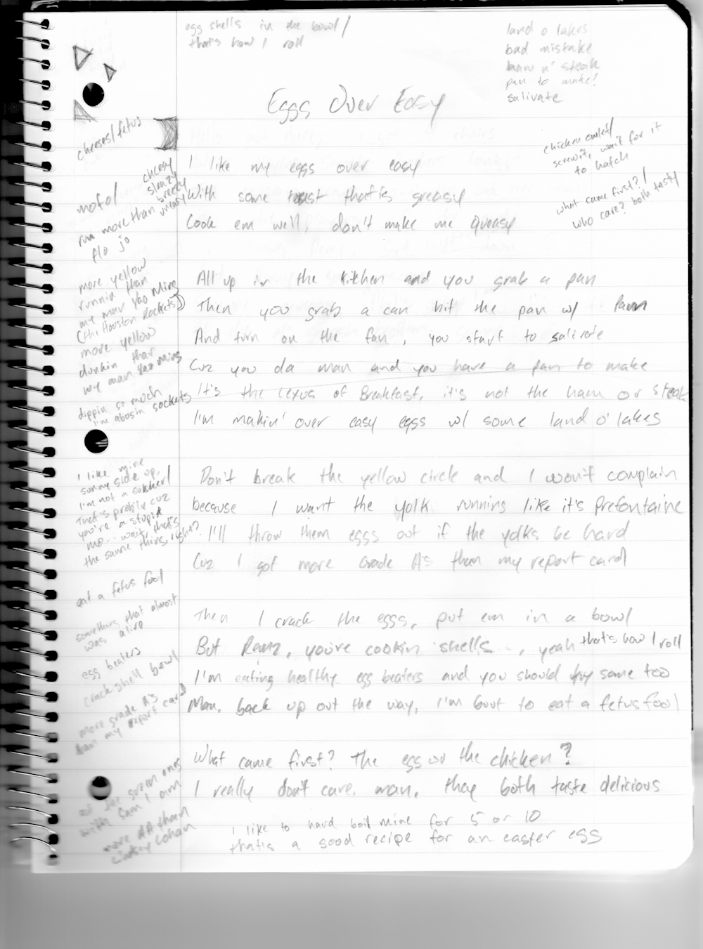 egg shells in the bowl/
that's how I roll
land o lakes
bad mistake
ham n' steak
pan to make!
salivate
Eggs Over Easy
cheeses/fetus
chicken omelet/
screw it, wait for it
to hatch
what came first?/
who care? both tasty
cheesy
slimy
greasy
mofo!
run more than
flo jo
I like my eggs over easy
With some toast that is greasy
Cook em well, don't make me queasy
more yellow
runnin than
my man Yao Ming
(the Houston Rockets)
more yellow
dunkin than
my man Yao Ming
dippin so much
I'm abusin sockets
All up in the kitchen and you grab a pan
Then you grab a can hit the pan w/ Pam
And turn on the fan, you start to salivate
Cuz you da man and you have a pan to make
It's the Lexus of Breakfast, it's not the ham or steak
I'm makin' over easy eggs w/ some land o' lakes
I like mine
sunny side up,
I'm not a sucker!
That's prolly cuz
you're a stupid
mo... wait, that's
the same thing, right?
Don't break the yellow circle and I won't complain
because I want the yolk running like it's Prefontaine
I'll throw them eggs out if the yolks be hard
Cuz I got more Grade A's than my report card
eat a fetus fool
something that almost
was alive
egg beaters
crack shell bowl
more grade A's
than my report card
Then I crack the eggs, put em in a bowl
But Ramz, you're cookin shells.., yeah that's how I roll
I'm eating healthy egg beaters and you should try some too
Man, back up out the way, I'm bout to eat a fetus fool
eat the green ones
with Sam I am
more than
Lindsay Lohan
What came first? The egg or the chicken?
I really don't care, man, they both taste delicious
I like to hard boil mine for 5 or 10
that's a good recipe for an easter egg